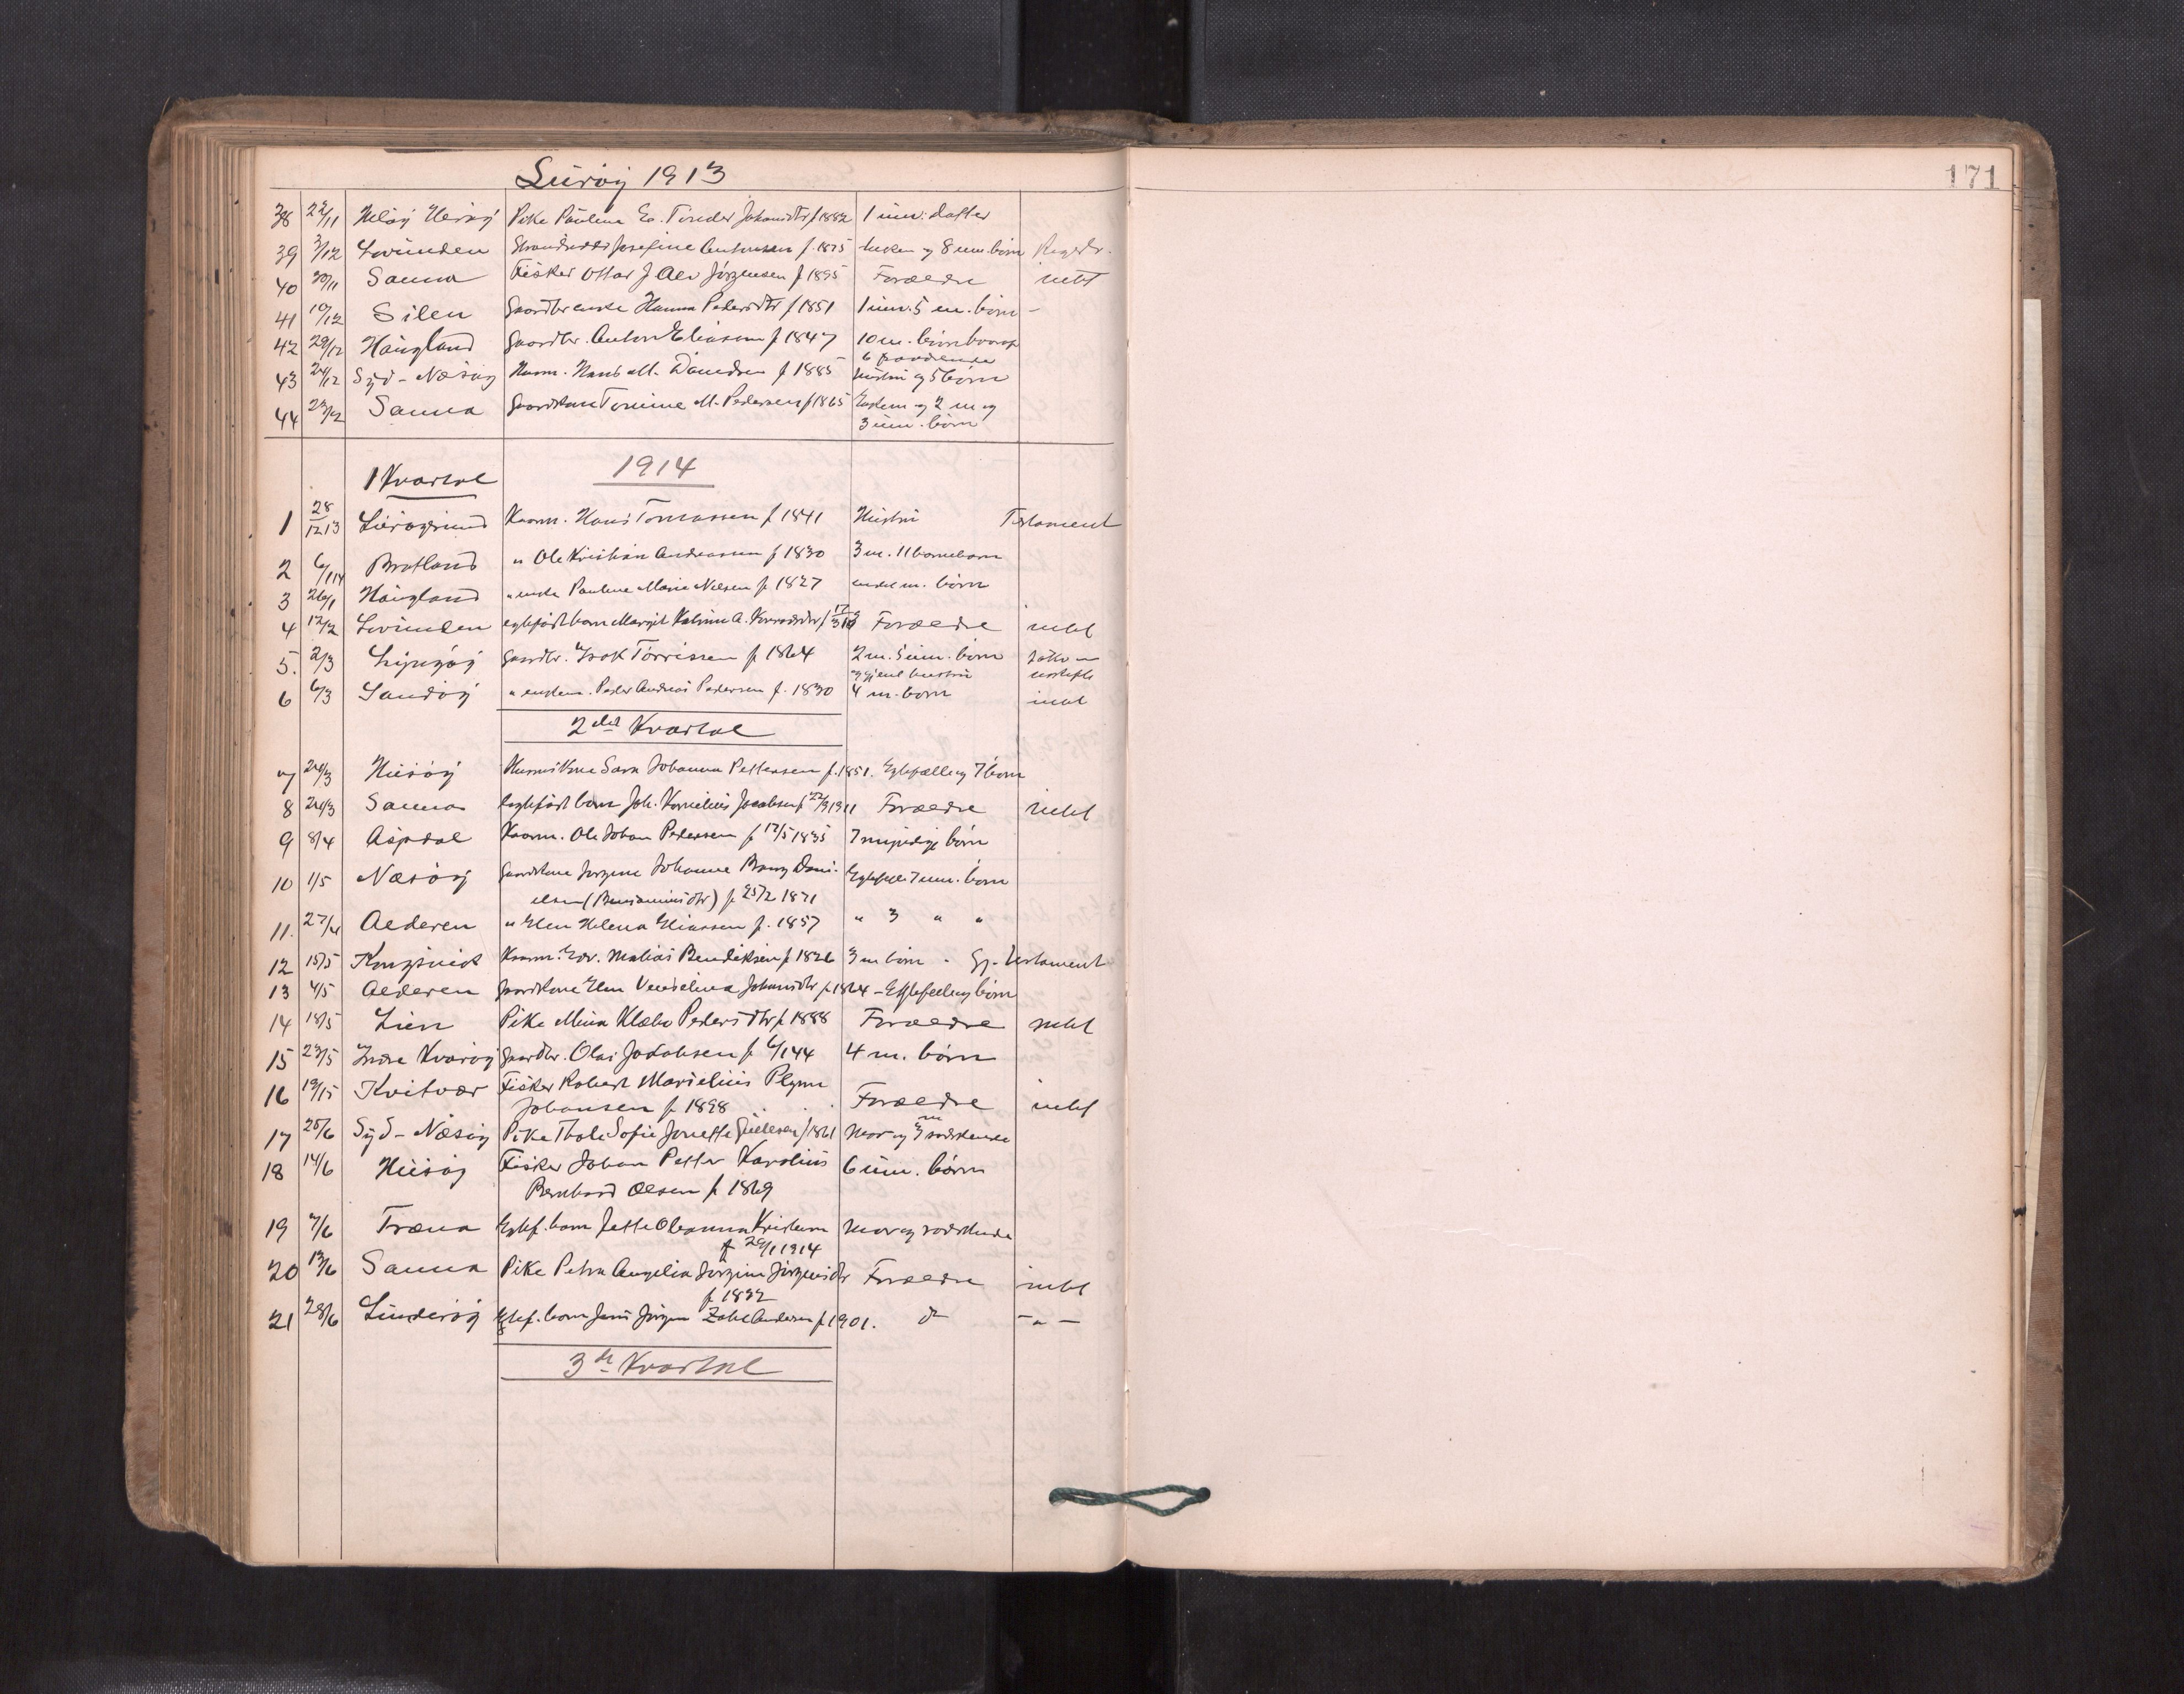 Luröy 1913
171
38 22/11 Pike Pauline Johansdtr f 1882 1 um. datter
39 3/12 Lovunden Josefine Antonsen f. 1875 enken og 8 um. børn
40 20/11 Sanna Fisker Ottar J Alv Jörgensen f 1895 Forældre intet
41 10/12 Silen Gaardbr enke Hanna Pedersdtr f 1851 1 um. 5 m. børn -
42 29/12 Haugland Gaardbr. Anton Eliasen f 1847 10 m. børn hvoraf
6
43 24/12 Syd-Næsöy Husm. Hans M. Danielsen f 1885 Hustru og 5 børn
44 23/12 Sanna Gaardkone Tomine M. Pedersen f 1865 Enkem og 2 m og
3 um. børn
1 Kvartal 1914
1 28/12 13 Kaarm. Hans Tomassen f 1841 Hustru Testament
2 6/1 14 Bratland " Ole Kristian Andreassen f 1830 3 m. 11 barnebarn
3 26/1 Haugland " enke Pauline Marie Nilsen f 1827 m. børn
4 12/2 Lovunden egtefødt barn Margit Katrine A. f 17/3 Forældre intet
5. 2/3 Lyngöy Gaardbr. Isak Tørrissen f 1864 2 m. 5 um. børn
og gjenl hustru
6 6/3 Sandöy " enkem. Peder Andreas Pedersen f. 1830 4 m. børn intet
2det Kvartal
7 24/3 Husöy Husmkone Sara Johanna Pettersen f. 1851. Egtefælle og 7 børn
8 24/3 Sanna Egtefødt barn Joh. Kornelius Jacobsen f 22/9 1911 Forældre intet
9 8/4 Aspdal Kaarm. Ole Johan Pedersen f 12/5 1835 7 myndige børn
10 1/5 Næsöy Gaardkone Jörgine Johanne Danielsen (Benjaminsdtr) f 25/2 1871 Egtefælle 7 um. børn
11. 27/4 Alderen " Elen Helena Eliassen f. 1857 " 3 " "
12 15/5 Kongsvik Kaarm. Edv. Matias Bendiksen f 1826 3 m børn - Gj. testament
13 4/5 Alderen Gaardkone Elen Vendelina Johansdtr f. 1864 - Egtefælle og børn
14 18/5 Lien Pike Mina Klæbo Pedersdtr f 1888 Forældre intet
15 23/5 Indre Kvaröy Gaardbr. Olai Jakobsen f 6/1 44 4 m. børn
16 19/15 Kvitvær Fisker Robert Marselius Plym
Johansen f 1898 Forældre intet
17 25/6 Syd-Næsöy Pike Thale Sofie Jonette f 1861 Mor og 3 m sødskende
18 14/6 Husöy Fisker Johan Petter Karolius 6 um. børn
Bernhard Olsen f 1869
19 7/6 Træna Egtef. barn Jette Oleanna Kristensen Mor og sødskende
f 29/1 1914
20 13/6 Sanna Pike Petra Angelia Jörgine Jörgensdtr Forældre intet
f 1892
21 28/6 Egtef. barn Jens Jörgen Zahl Andersen f 1901. do - " -
3de Kvartal